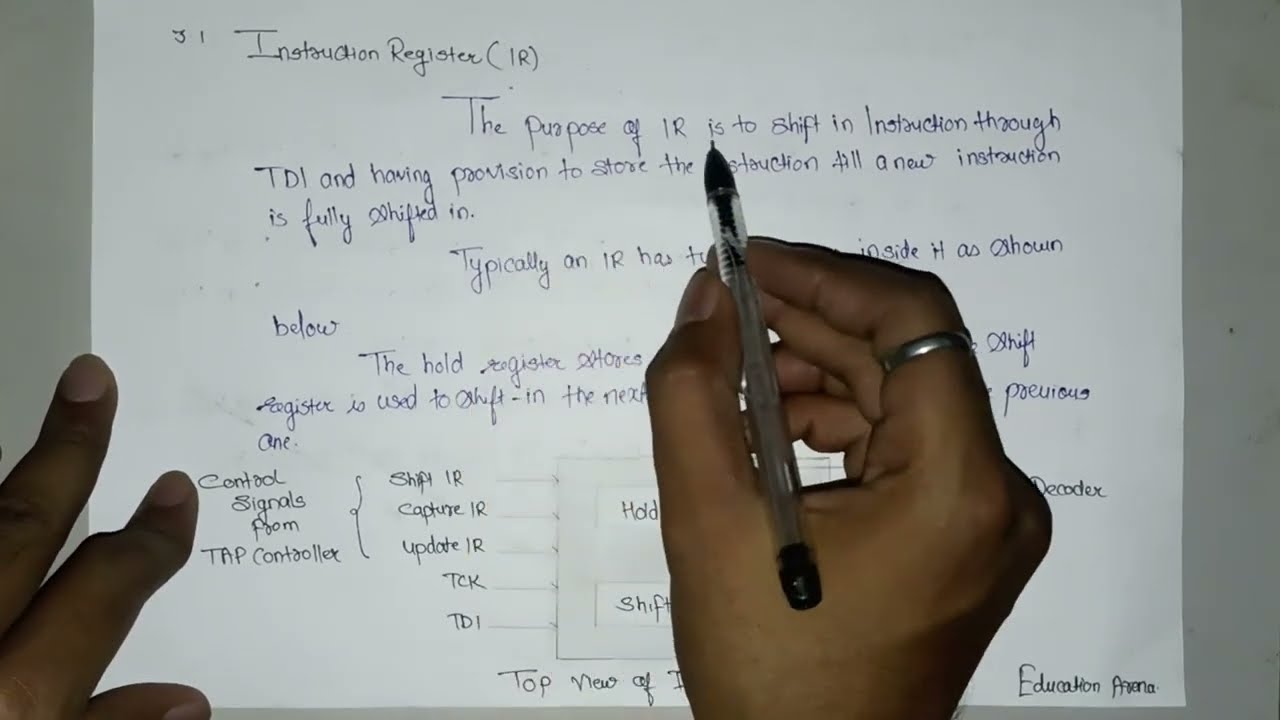 3 1 Instruction Register (IR)
The purpose of IR is to shift in Instruction through
TDI and having provision to store the till a new instruction
is fully shifted in.
Typically an IR has inside it as shown
below
The hold register stores shift
register is used to shift-in the next previous
one.
Control
Signals
from
TAP Controller
Shift IR
Capture IR
Update IR
TCK
TDI
Hold
Shift
Decoder
Top view of
Education Arena